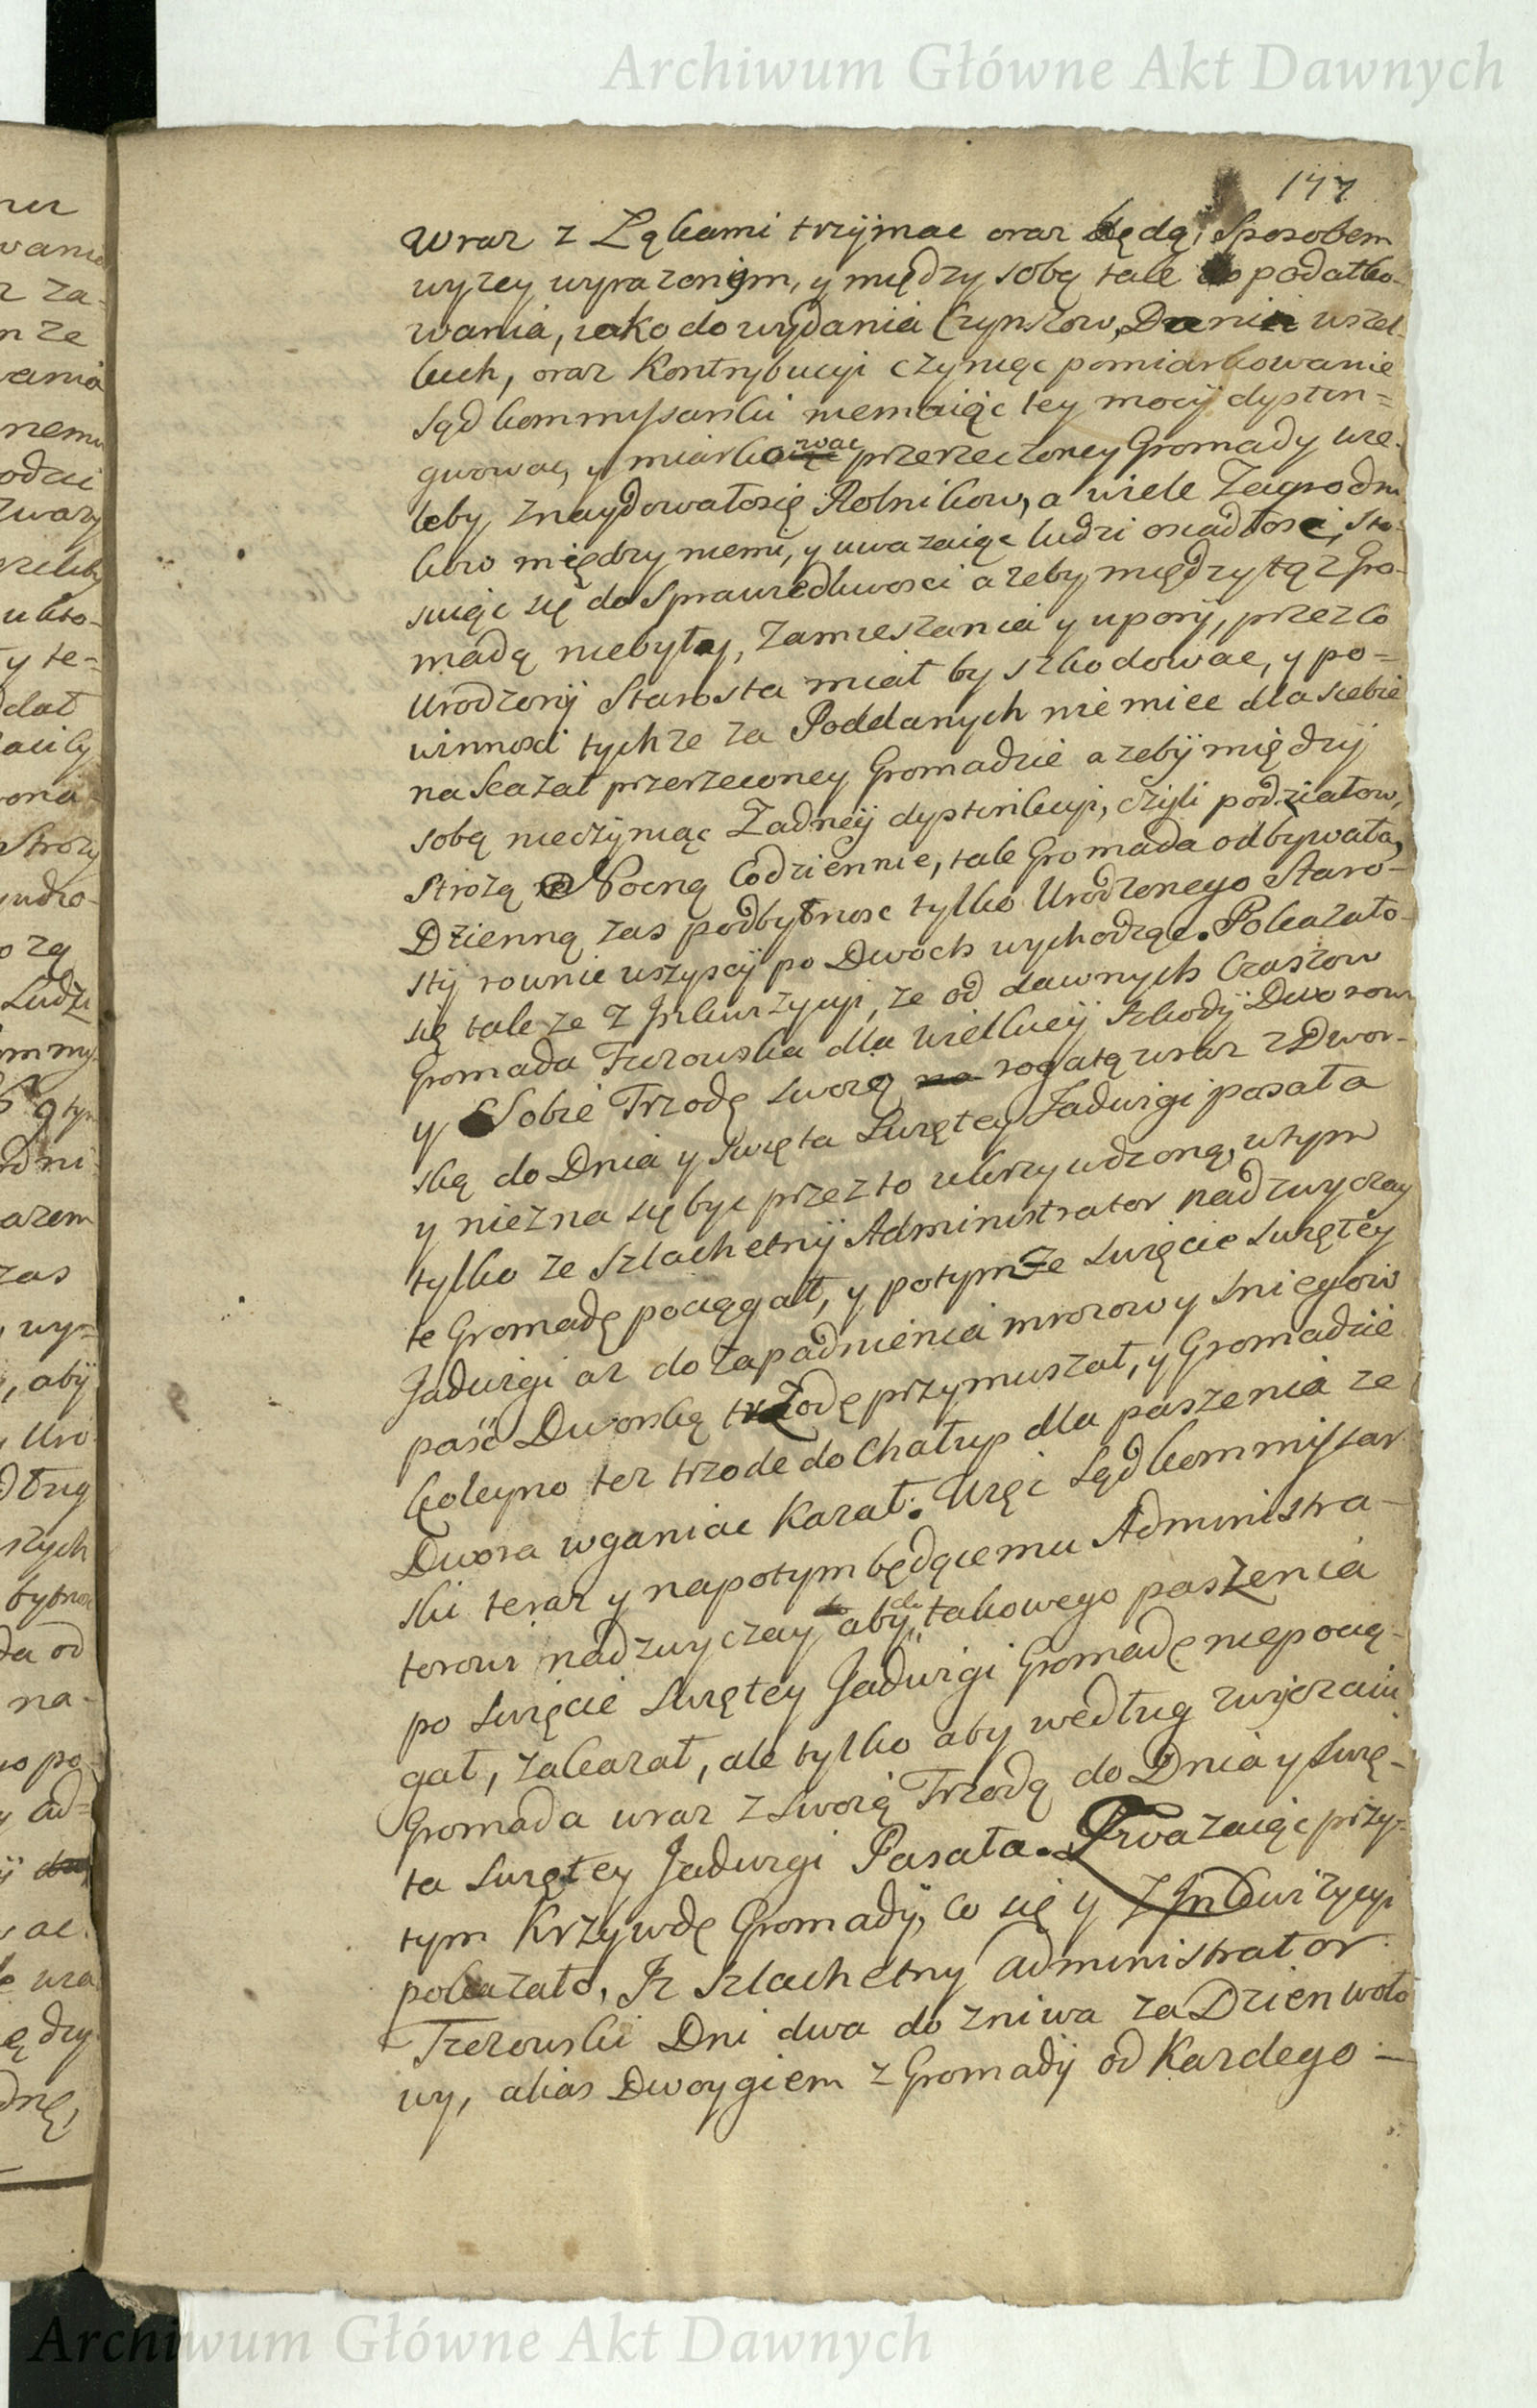 Archiwum Główne Akt Dawnych
177
wraz z Łąkami trzÿmac oraz będą, Sposobem
wyzey wyrazonym, y między sobą tak do podatko-
wania, iako do wydania Czynszow, Danin wszel-
kich, oraz Kontrybucyi czyniąc pomiarkowanie
Sąd kommissarski niemaiąc tey mocÿ dystin=
gwowac, y miarkowac przerzeczoney Gromady wie-
leby znaydowałosię Rolnikow, a wiele Zagrodni
kow między niemi, y uwazaiąc ludzi osiadłosc, sto-
suiąc się do Sprawiedliwosci azeby między tąz Gro-
madą niebyły, Zamieszania y uporÿ, przez co
Urodzonÿ Starosta miał by szkodowac, y po=
winnosci tychze za Poddanych niemiec dla siebie
nakazał przerzeczoney Gromadzie azebÿ międzÿ
sobą nieczyniąc Zadneÿ dystinkcyi, czyli podziałow,
Strozą Nocną Codziennie, tak Gromada odbywała,
Dzienną zas podbytnosc tylko Urodzonego Staro-
stÿ rownie wszyscÿ po Dwoch wychodząc. Pokazało
się takze z Inkwizycyi, ze od dawnych Czasow
Gromada Trzowska dla wielkieÿ Szkodÿ Dworow
y Sobie Trzodę swoią rogatą wraz z Dwor-
ską do Dnia y Swięta Swiętey Jadwigi pasała
y niezna się byc przez to ukrzywdzoną, wtym
tylko ze Szlachetnÿ Administrator nadzwyczay
te Gromadę pociągał, y potymze Swięcie Swiętey
Jadwigi az do zapadnienia mrozow y sniegow
pasć Dworską trzodę przymuszał, y Gromadzie
koleyno tez trzode do Chałup dla paszenia ze
Dwora wganiac Kazał. Więc Sąd kommissar
ski teraz y napotym będącemu Administra-
torowi nadzwyczay aby do takowego paszenia
po Swięcie Swiętey Jadwigi Gromadę niepocią-
gał, zakazał, ale tylko aby według zwyczaiu
Gromada wraz z Swoią Trzodą do Dnia y Swię-
ta Swiętey Jadwigi Pasała. Uwazaiąc przy-
tym Krzywdę Gromadÿ, co się y z Inkwizycyi
pokazało, Iz Szlachetny Administrator
Trzezowski Dni dwa do zniwa za Dzien woło
wy, alias Dwoygiem z Gromadÿ od Kazdego —
Archiwum Główne Akt Dawnych